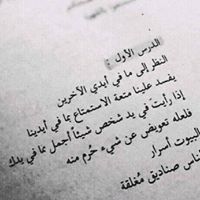 الدرس الأول :
النظر إلى ما في أيدي الآخرين
يفسد علينا متعة الاستمتاع بما في أيدينا
إذا رأيتَ في يد شخص شيئاً أجمل مما في يدك
فلعله تعويض عن شيء حُرم منه
البيوت أسرار
الناس صناديق مُغلقة